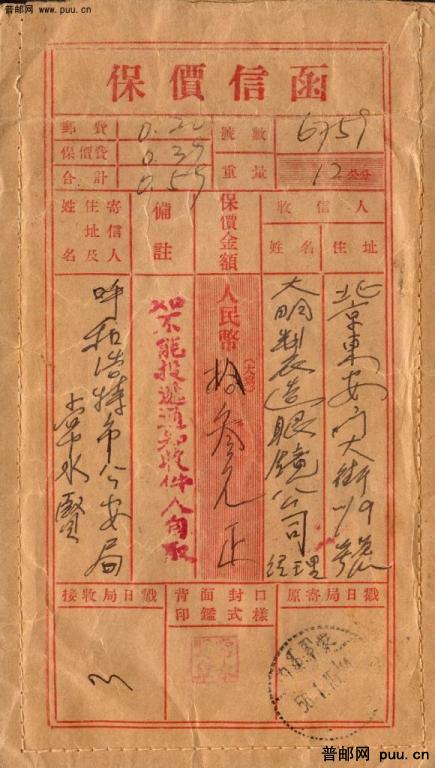 普邮网 www.puu.cn
保價信函
郵費 0.20
號數 6759
保價費 0.39
重量 12公分
合計 0.59
收信人
住址 姓名
北京東安门大街79號
大明製造眼鏡公司
经理
保價金額
人民幣(大寫) 拾叁元正
備註
如不能投遞通知收件人自取
寄信人
住址及
姓名
呼和浩特市公安局
水賢
原寄局日戳
背面封口
印鑑式樣
接收局日戳
普邮网 puu.cn